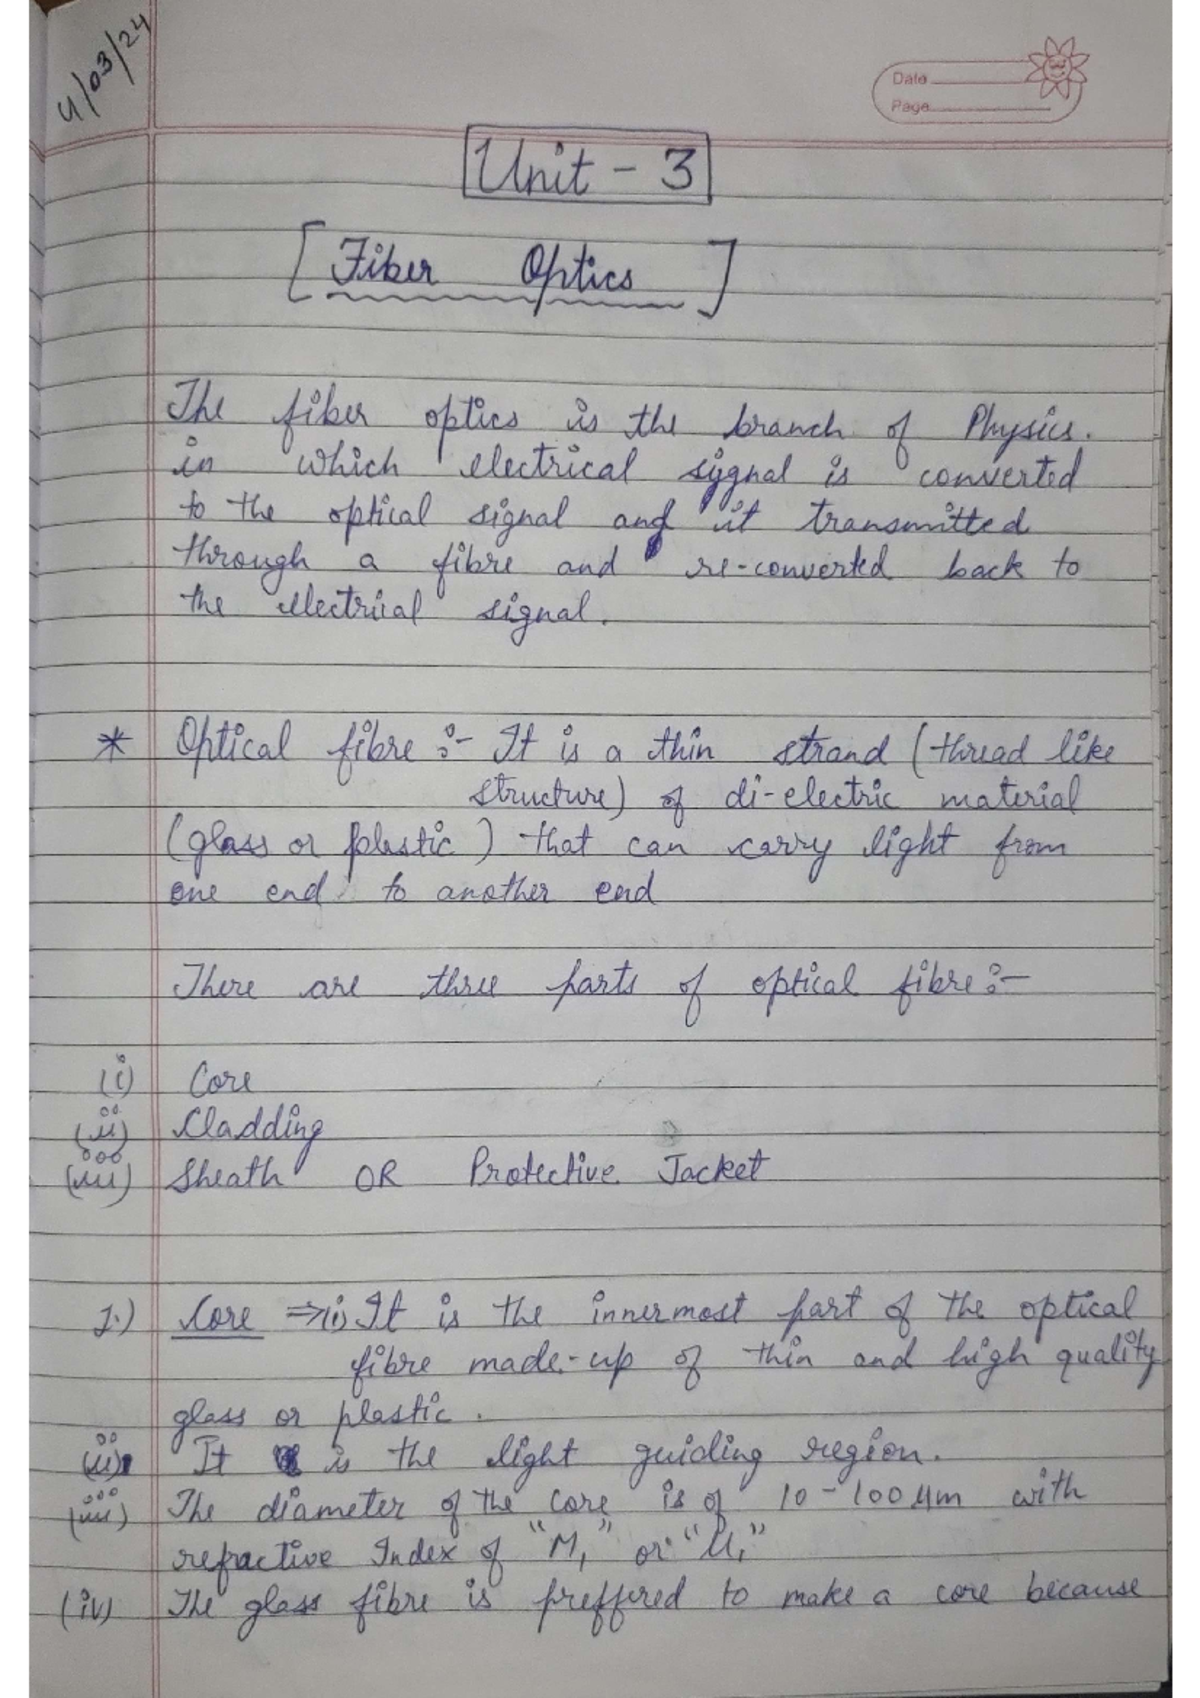 4/03/24
Date
Page
Unit - 3
[ Fiber Optics ]
The fiber optics is the branch of Physics.
in which electrical sygnal is converted
to the optical signal and it transmitted
through a fibre and re-converted back to
the electrical signal.
* Optical fibre :- It is a thin strand (thread like
structure) of di-electric material
(glass or plastic) that can carry light from
one end to another end
There are three parts of optical fibre :-
(i) Core
(ii) Cladding
(iii) Sheath OR Protective Jacket
1.) Core ⇒ (i) It is the innermost part of the optical
fibre made-up of thin and high quality
glass or plastic.
(ii) It is the light guiding region.
(iii) The diameter of the core is of 10-100 μm with
refractive Index of "M₁" or "μ₁"
(iv) The glass fibre is preffered to make a core because